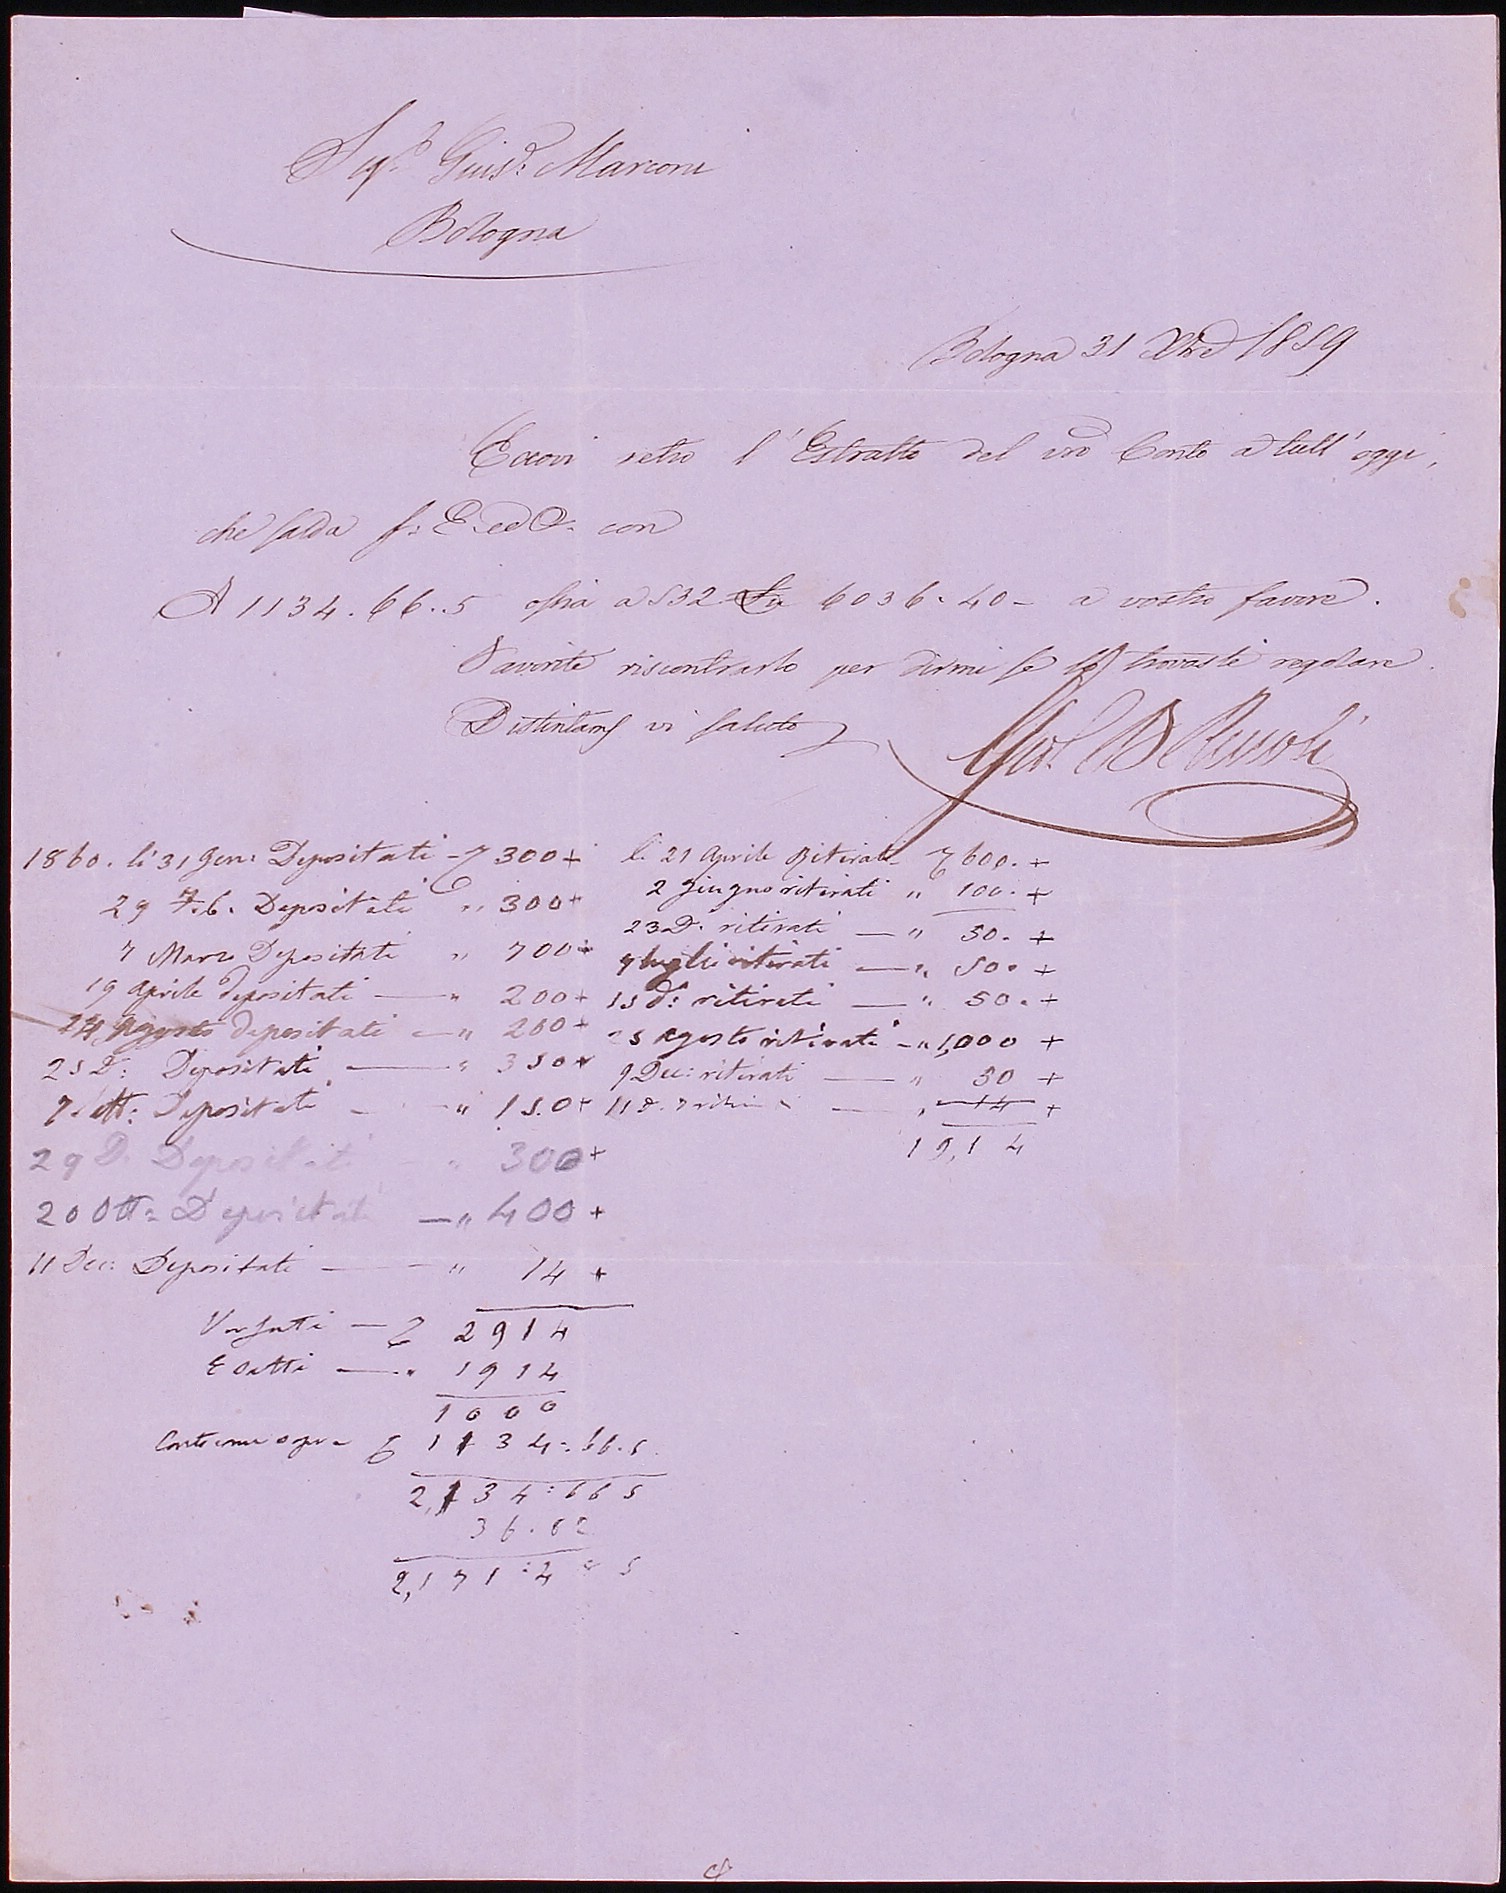 Sigr. Guis.e Marconi
Bologna
Bologna 31 Xbre 1859
Eccovi retro l'Estratto del vro Conto a tutt'oggi,
che salda s. E. ed O. con
1134.66.5 ossia a 532 6036.40 - a vostro favore.
Favorite riscontrarlo per dirmi se lo trovaste regolare.
Distintam vi saluto
1860. li 31 Gen: Depositati - 300 +
29 Feb. Depositati " 300 +
7 Marzo Depositati " 700 +
19 Aprile depositati — " 200 +
24 Agosto depositati — " 200 +
25 D: Depositati — " 350 +
7 Sett: Depositati — " 150 +
29 D. Depositati " 300 +
20 Ott: Depositati — " 400 +
11 Dec: Depositati — " 14 +
2914
Esatti — " 1914
1000
Conto come sopra 1134:66.5
2,134:665
36.82
2,171:4 8 5
li 21 Aprile Ritirati 600. +
2 Giugno ritirati " 100. +
23 D. ritirati — " 50. +
9 luglio ritirati — " 50. +
15 d: ritirati — " 50. +
25 Agosto ritirati - " 1,000 +
9 Dec: ritirati — " 50 +
11 d. — " 14 +
19,14